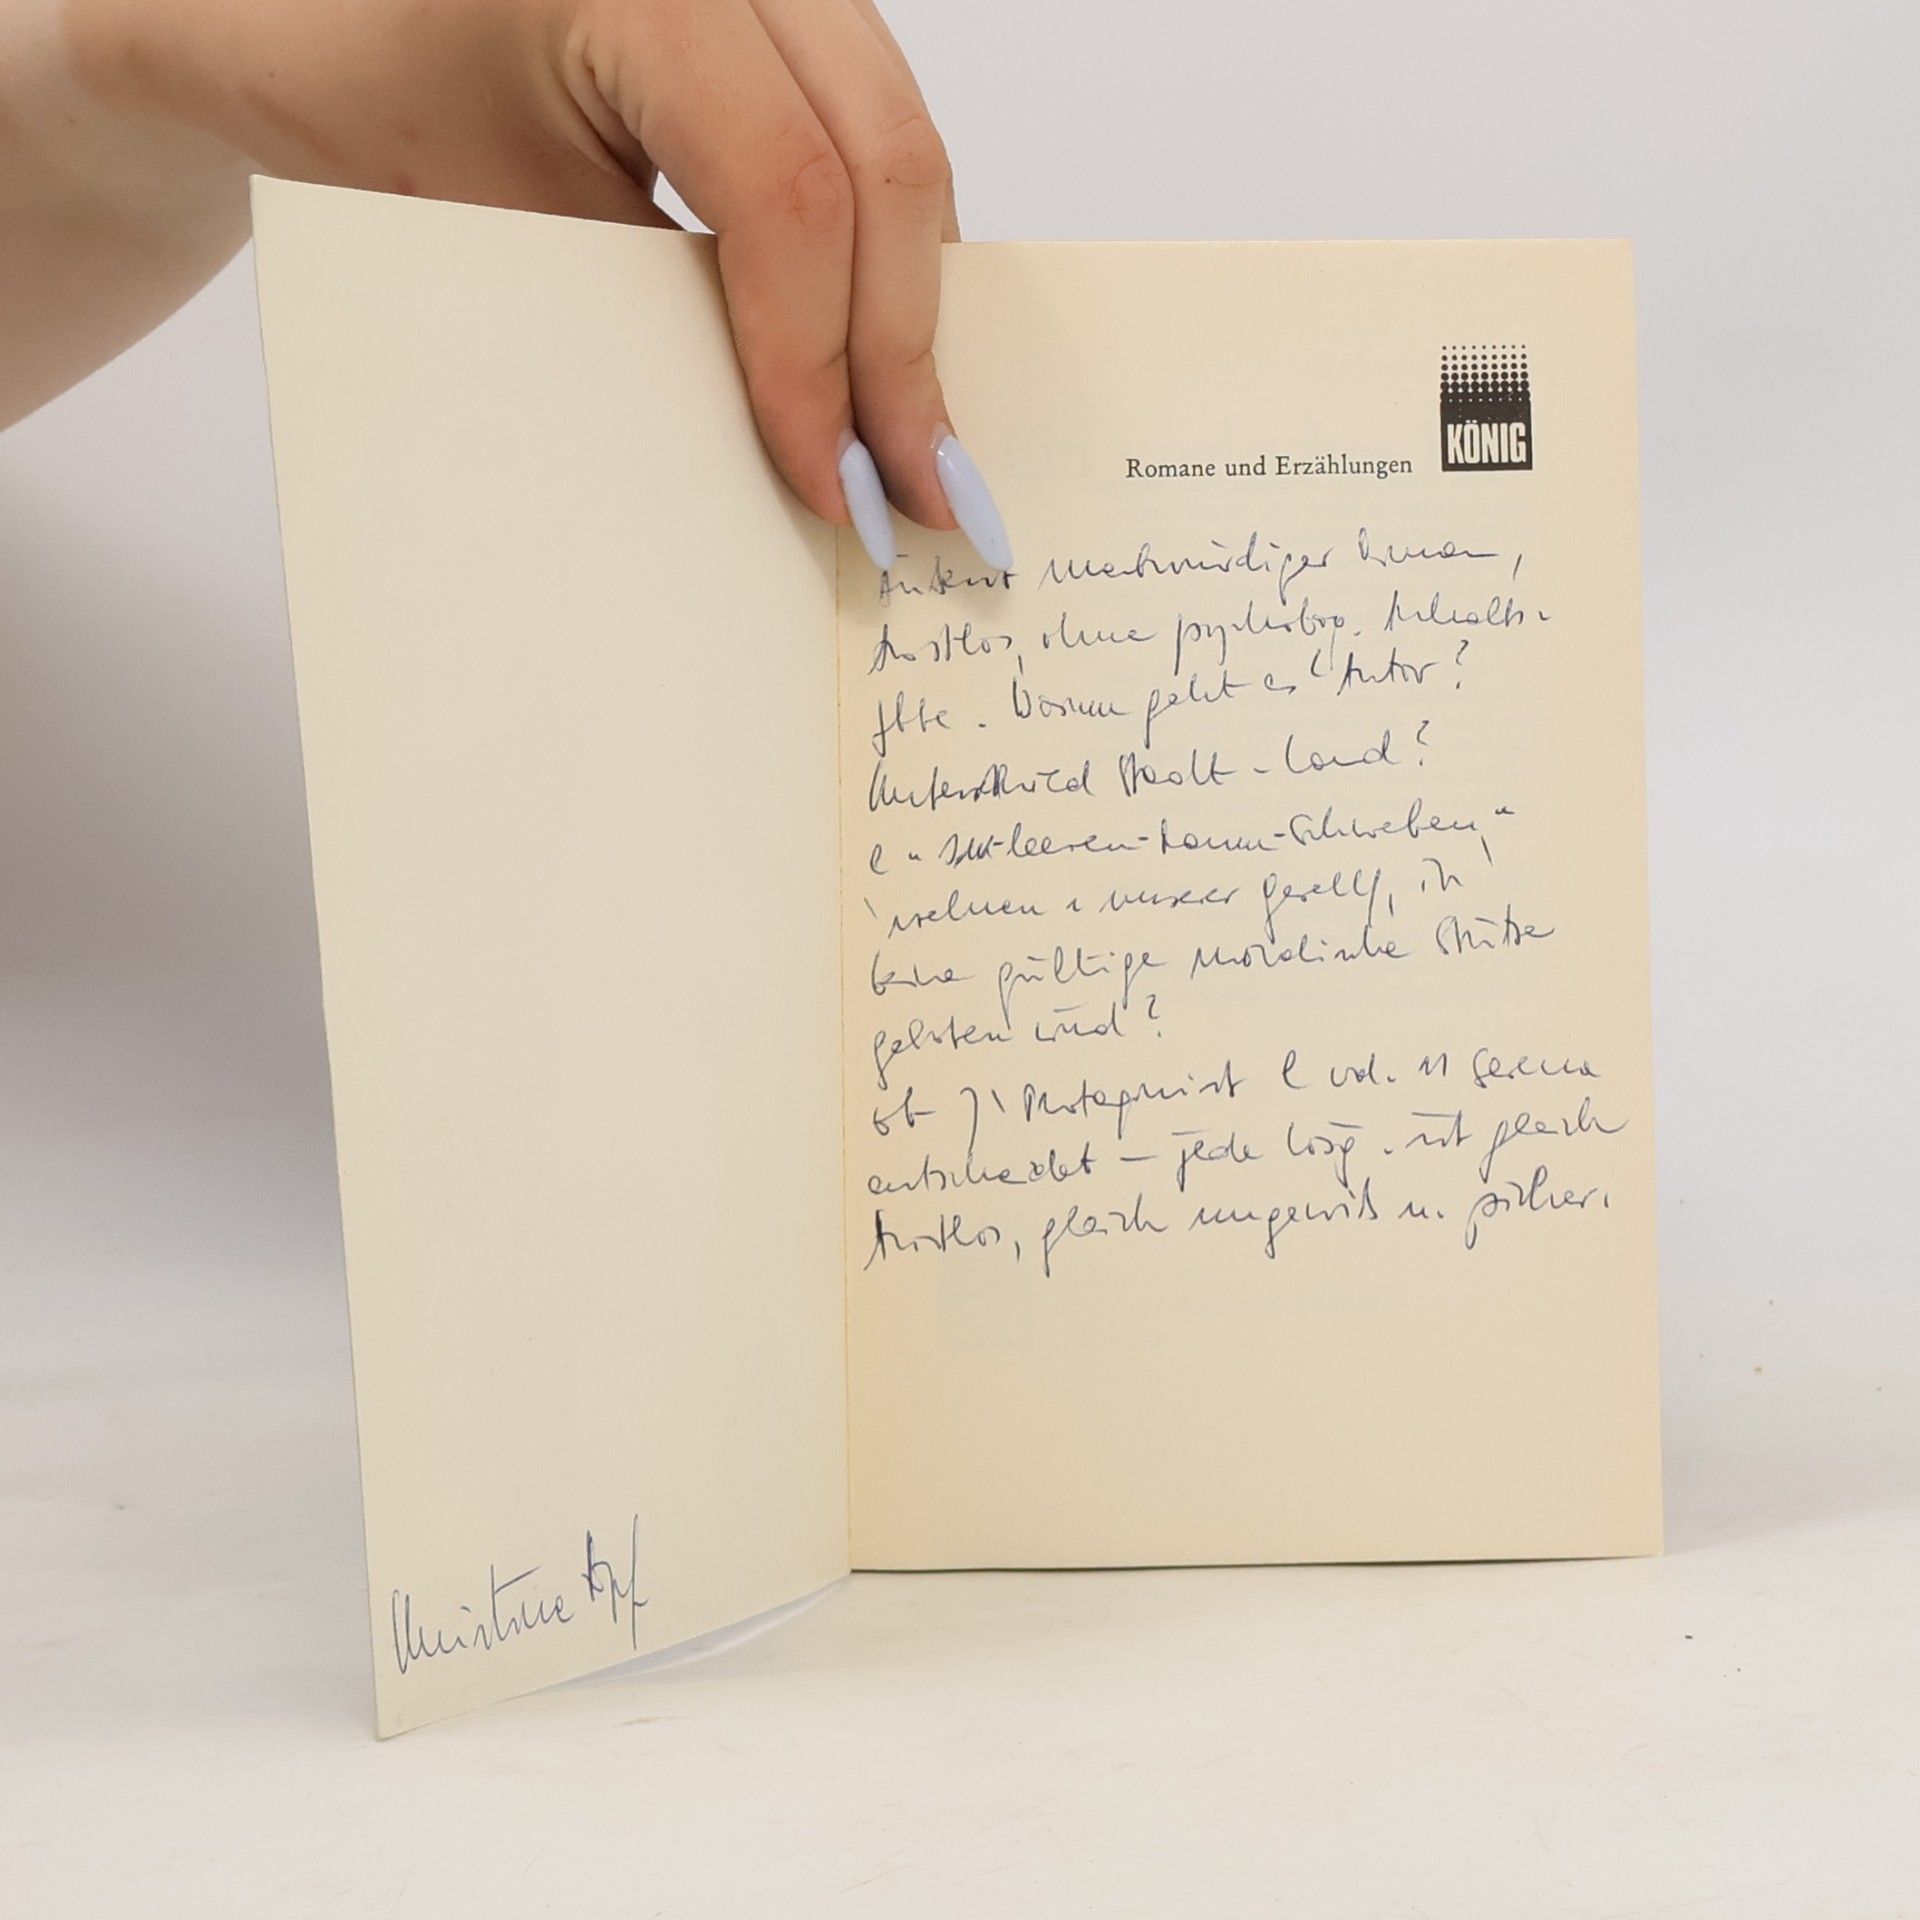 KÖNIG
Romane und Erzählungen
Äußerst merkwürdiger Roman,
trostlos, ohne psycholog. Anhalts-
Worum geht es Autor?
Unterschied Stadt - Land?
"Im-leeren-Raum-Schweben,"
unserer Gesellsch, in
keine gültige moralische Stütze
geboten wird?
ob Protagonist od. Serena
entscheidet – jede Lösg. ist gleich
trostlos, gleich ungewiß u. sicher.
Christine